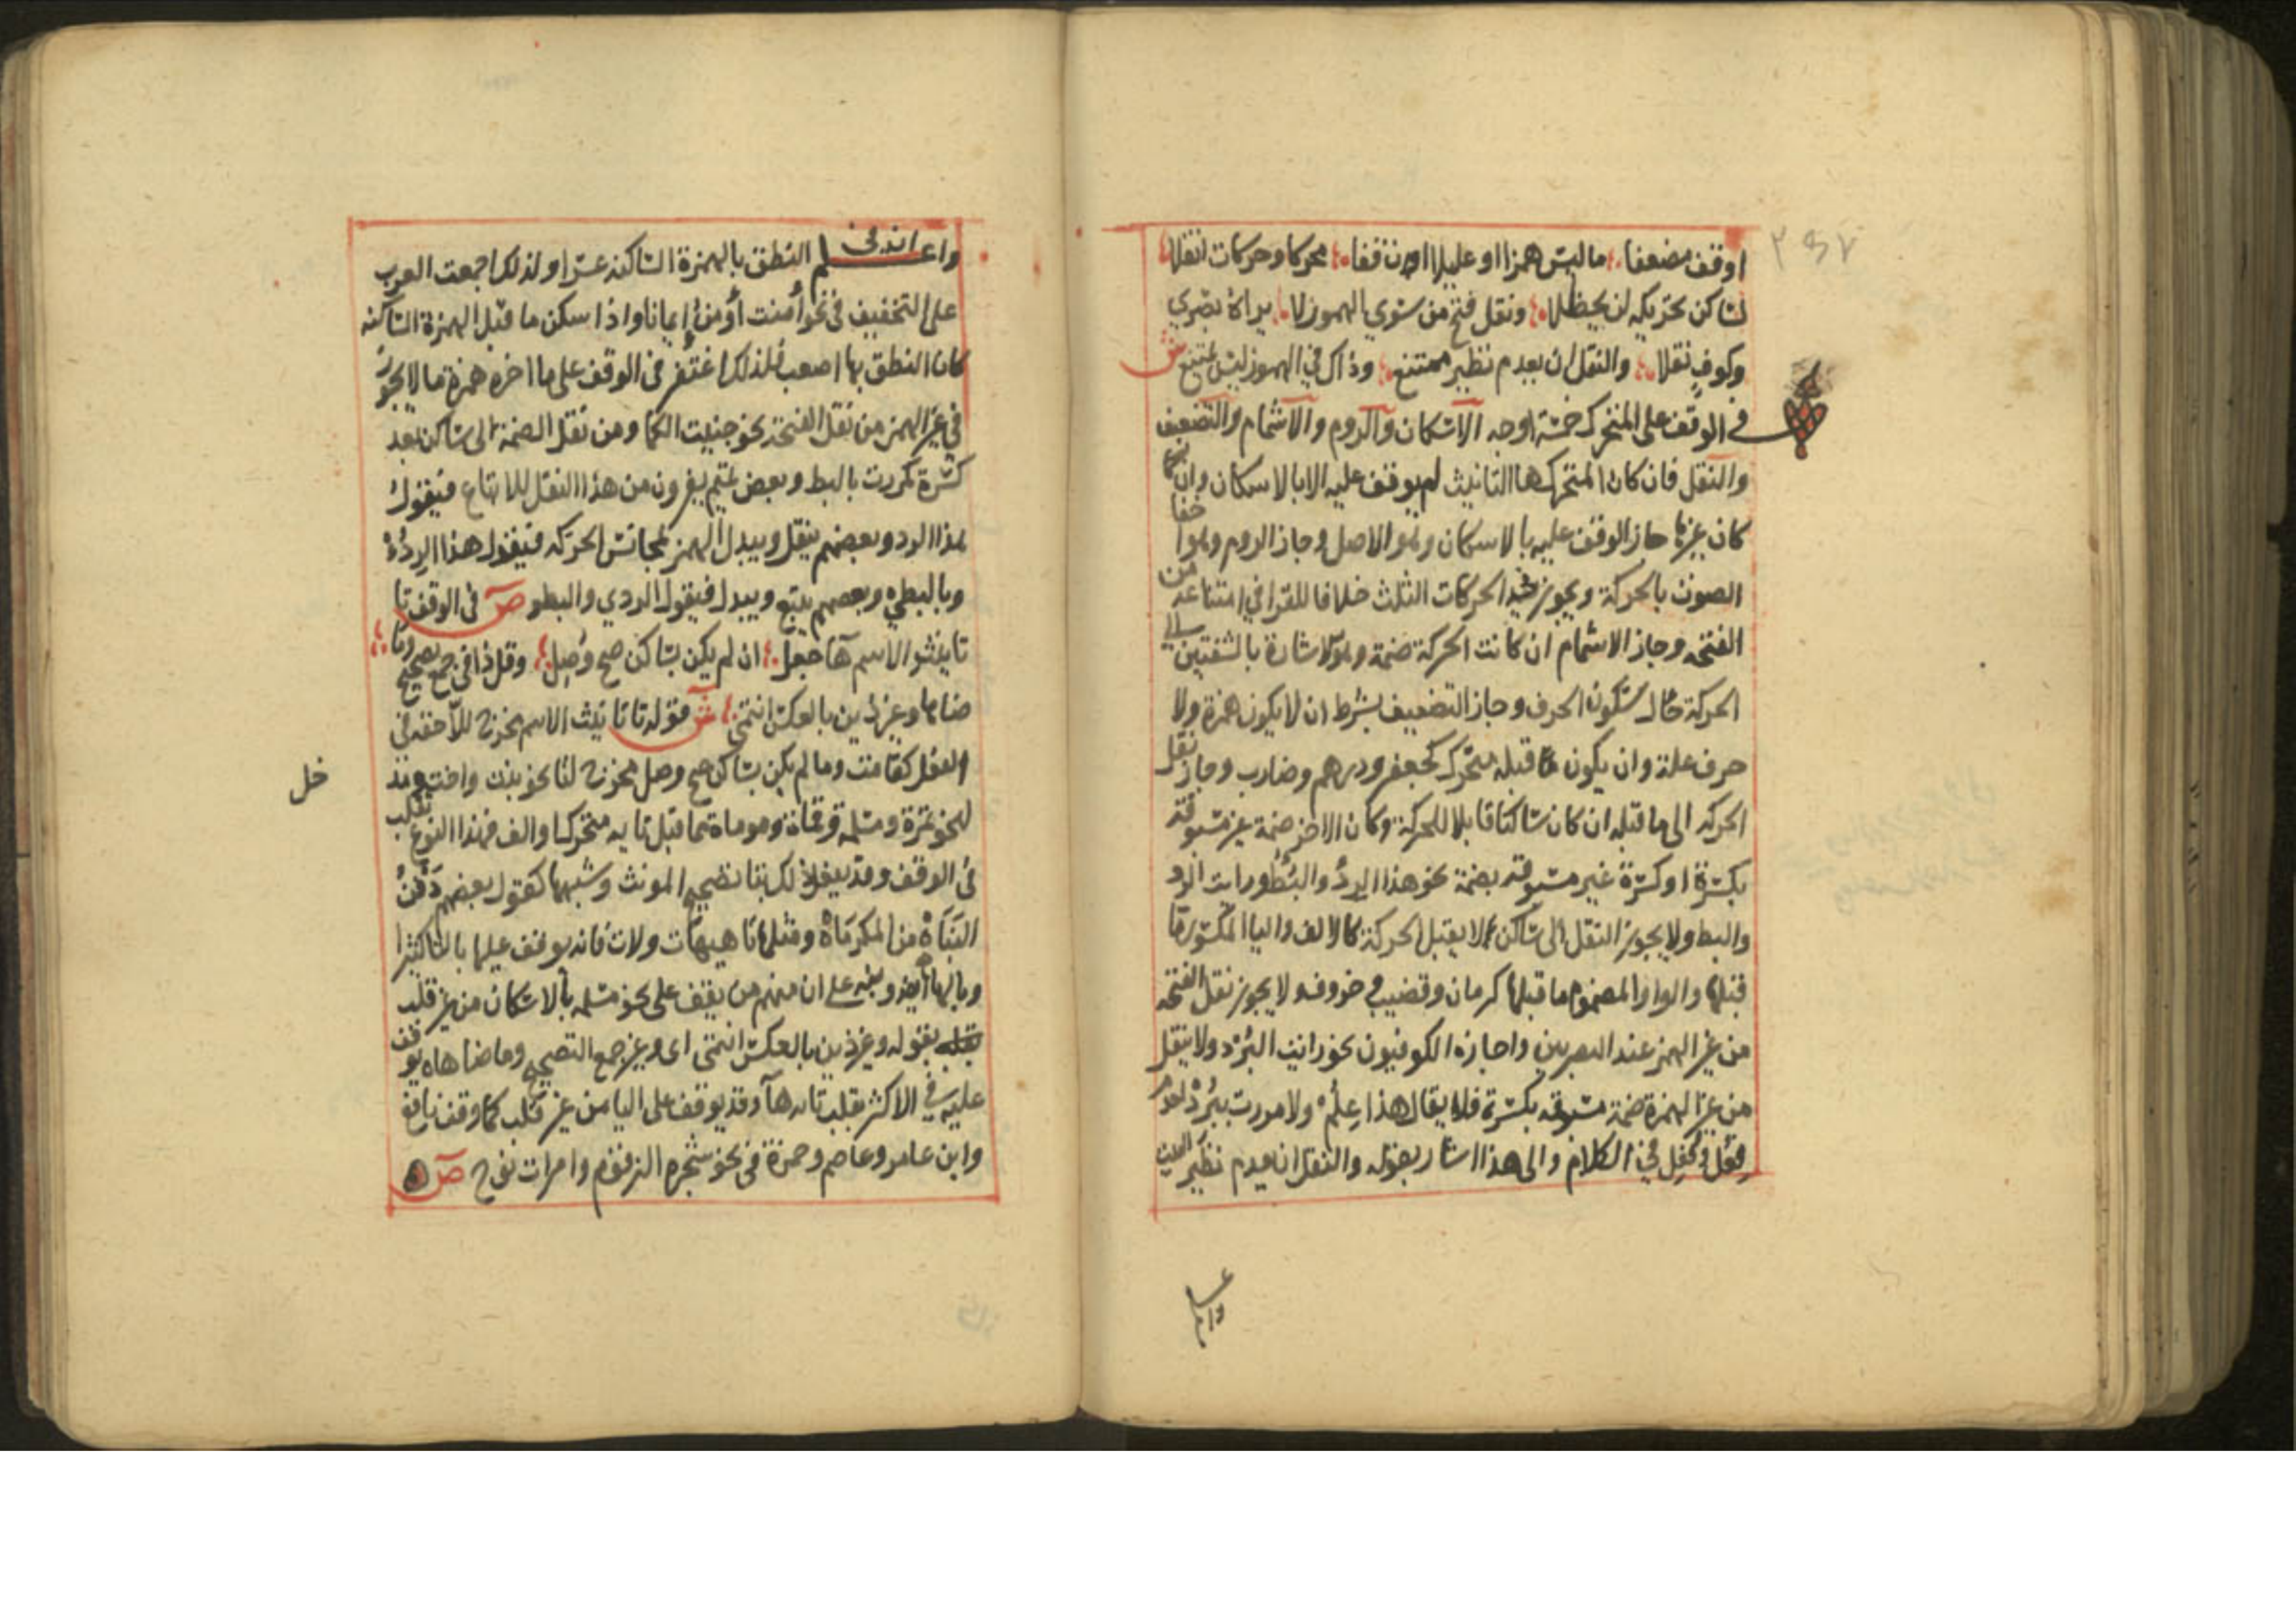 او قف مضعفا ما ليس همزا او عليلا ان قفا محركا وحركات انقلا
لساكن تحريكه لن يحظلا ونقل فتح من سوي المهموز لا يراه بصري
وكوف نقلا والنقل ان يعدم نظير ممتنع وذاك في المهموز ليس يمتنع ش
في الوقف على المتحرك خمسة اوجه الاسكان والروم والاشمام والتضعيف
والنقل فان كان المتحرك هاء التانيث لم يوقف عليه الا بالاسكان وان
كان غيرها جاز الوقف عليه بالاسكان وهو الاصل وجاز الروم وهو اخفا
الصوت بالحركة ويجوز في الحركات الثلث خلافا للقرا في امتناعه من
الفتحة وجاز الاشمام ان كانت الحركة ضمة وهو الاشارة بالشفتين الى
الحركة حال سكون الحرف وجاز التضعيف بشرط ان لا يكون همزة ولا
حرف علة وان يكون ما قبله متحرك كجعفر ودرهم وضارب وجاز نقل
الحركه الى ما قبله ان كان ساكنا قابلا للحركة وكان الاخر ضمة غير مسبوقة
بكسرة او كسرة غير مسبوقه بضمة نحو هذا الردؤ والبطؤ ورايت الرد
والبط ولا يجوز النقل الى ساكن لا يقبل الحركة كالالف واليا المكسور ما
قبلها والواو المضموم ما قبلها كرمان وقضيب وخروف ولا يجوز نقل الفتحه
من غير الهمز عند البصريين واجازه الكوفيون نحو رايت البرد ولا ينقل
من غير الهمزة ضمة مسبوقه بكسرة فلا يقال هذا علم ولا مررت ببرد لعدم
فعل وفعل في الكلام والى هذا اشار بقوله والنقل ان يعدم نظير البيت
واعلم ان في النطق بالهمزة الساكنه عسرا ولذلك اجمعت العرب
على التخفيف في نحو أمنت أومن إيمانا واذا سكن ما قبل الهمزة الساكنه
كان النطق بها اصعب فلذلك اغتفر في الوقف على ما اخره همزة ما لا يجوز
في غير الهمز من نقل الفتحة نحو جنيت الكما ومن نقل الضمة الى ساكن بعد
كسرة كمررت بالبط وبعض تميم يفرون من هذا النقل للاتباع فيقول
هذا الرد وبعضهم ينقل ويبدل الهمز بمجانس الحركه فيقول هذا الردو
وبالبطي وبعضهم يتبع ويبدل فيقول الردي والبطو ص في الوقف تا
تانيث الاسم ها جعل ان لم يكن بساكن صح وصل وقل ذا في جمع تصحيح وما
ضاها وغير ذين بالعكس انتمى ش قوله تا تانيث الاسم تحرز للاحقة في
الفعل كقامت وما لم يكن بساكن صح وصل محرز لتا نحو بنت واخت وعند
خل
لنحو تمرة ومسلمة وقناة وموماة مما قبل تايه متحركا والف فهذا النوع يقلب
في الوقف وقد يفعل ذلك بتا تصحيح المونث وشبهها كقول بعضهم دفن
البناه من المكرماه ومثلها تا هيهات ولات فانه يوقف عليها بالتا كثيرا
وبالها ايضا ونبه على ان منهم من يقف على نحو مسلمه بالاسكان من غير قلب
بقوله وغير ذين بالعكس انتمى اى وغير جمع التصحيح وما ضاهاه يوقف
عليه في الاكثر بقلب تايه ها وقد يوقف على اليا من غير قلب كما وقف نافع
وابن عامر وعاصم وحمزة في نحو شجره الزقوم وامرات نوح ص